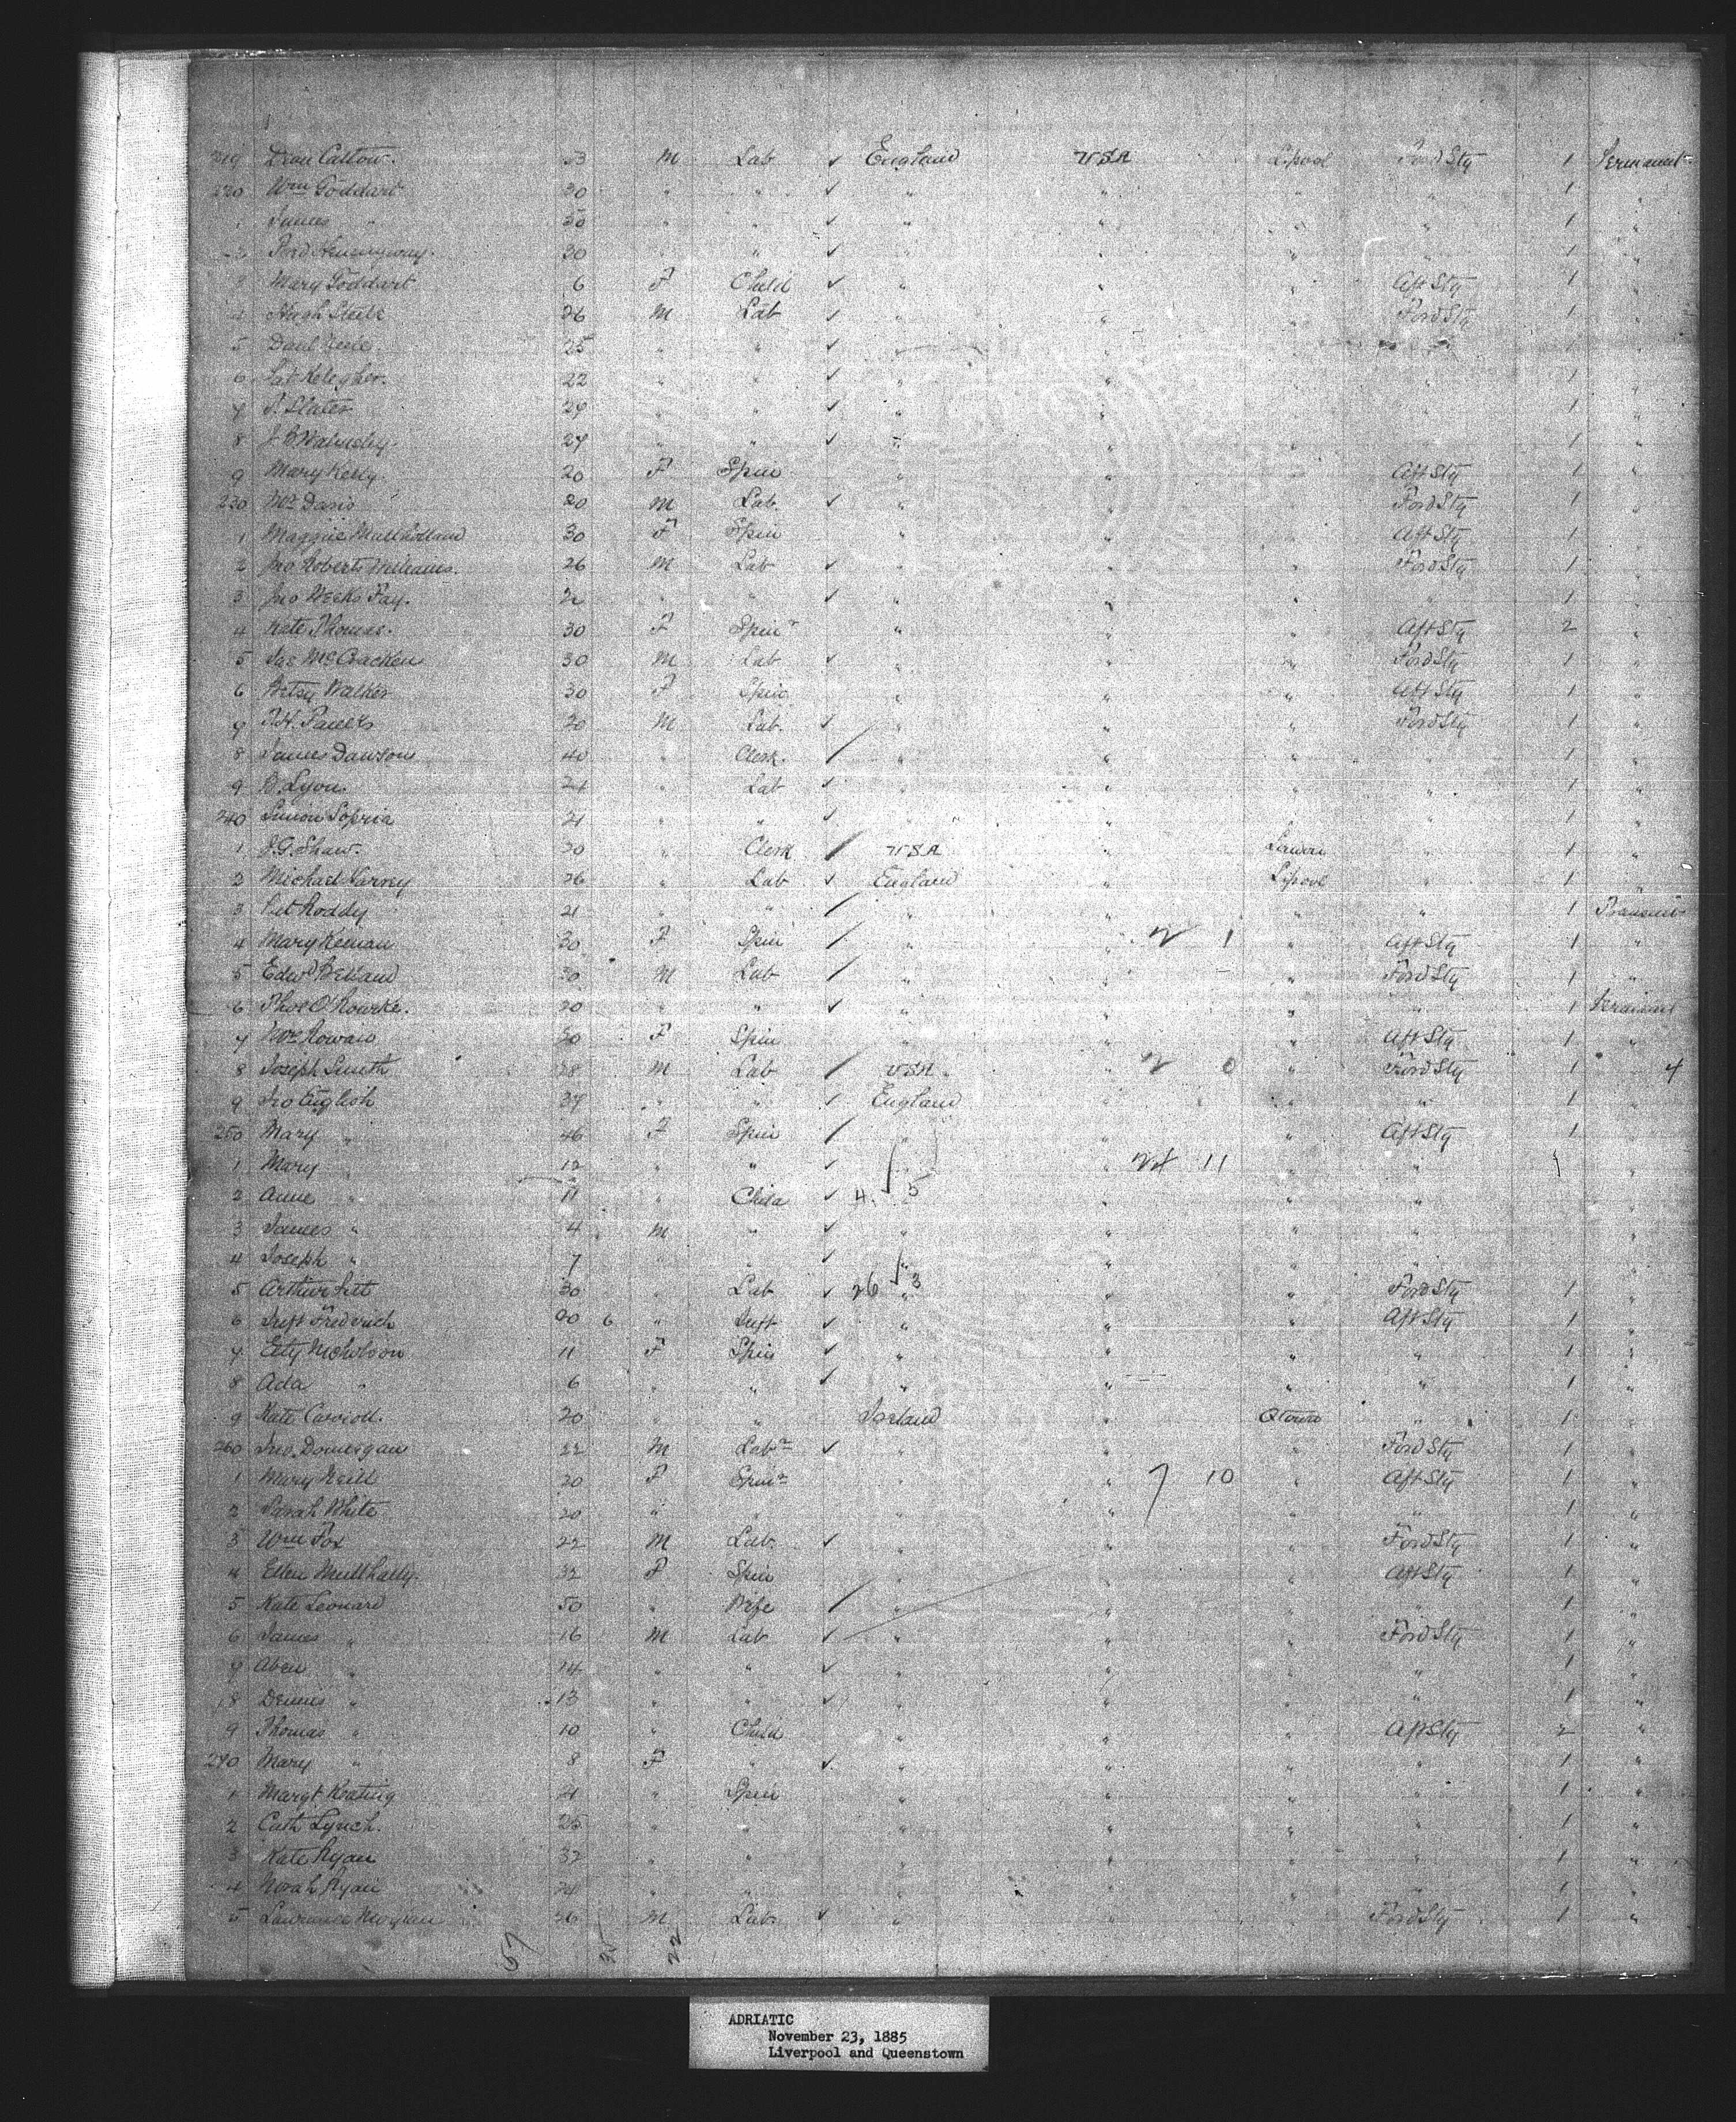 219 Calton 33 M Lab ✓ England USA L'pool Ford Stg 1
220 Wm Goddart 30 " " ✓ " " " " 1 "
1 James " 50 " " ✓ " " " " 1 "
2 Hemingway. 30 " " ✓ " " " " 1 "
3 Mary Goddart 6 F Child ✓ " " " Aft Stg 1 "
4 Hugh Steele 26 M Lab ✓ " " " Ford Stg 1 "
5 25 " " ✓ " " " 1 "
6 Pat 22 " " ✓ " " " " 1 "
7 Slater 24 " " ✓ " " " " 1 "
8 J B Walmsley. 24 " " ✓ " " " " 1 "
9 Mary Kelly. 20 F Spin " " " Aft Stg 1 "
230 Davis 20 M Lab ✓ " " " Ford Stg 1 "
1 Maggie Mullholland 30 F Spin " " " Aft Stg 1 "
2 Jno Roberts Williams. 26 M Lab ✓ " " " Ford Stg 1 "
3 Jno Weeks Fay. " " ✓ " " " " 1 "
4 Kate Thomas. 30 F Spinr " " " Aft Stg 2 "
5 Jas McCracken 30 M Lab ✓ " " " Ford Stg 1 "
6 Betsy Walker 30 F Spin " " " Aft Stg 1 "
7 20 M Lab. ✓ " " " Ford Stg 1 "
8 James Dawson 40 " Clerk. / " " " " 1 "
9 B. Lyon. 24 " Lab ✓ " " " " 1 "
240 Simon Sopria 21 " " ✓ " " " " 1 "
1 J. G. Shaw. 20 " Clerk / USA " " 1 "
2 Michael Varney 26 " Lab ✓ England " L'pool " 1 "
3 Pat Roddy 21 " " / " " " " 1 Transient
4 Mary Keenan 20 F Spin / " " 2 1 " Aft Stg 1 "
5 Edwd 30 M Lab / " " " Ford Stg 1 "
6 Thos O'Rourke. 20 " " ✓ " " " " 1
7 Rowan 30 F Spin " " " Aft Stg 1 "
8 Joseph Smith 28 M Lab / USA " 2 0 " Ford Stg 1 " 4
9 Jno English 37 " " ✓ England " " " 1 "
250 Mary " 46 F Spin / " " " Aft Stg 1 "
1 Mary " 12 " " ✓ " " 24 11 " " 1 "
2 Anne " 11 " Child ✓ 4. 5 " " "
3 James " 4 M " ✓ " " " " "
4 Joseph " 7 " " ✓ " " " " "
5 Arthur 30 " Lab ✓ 26 " 3 " " Ford Stg 1 "
6 Frederick 40 6 " ✓ " " " Aft Stg 1 "
7 Etty Nicholson 11 F Spin ✓ " " " " 1 "
8 Ada " 6 " " ✓ " " " " 1 "
9 Kate Carroll. 20 " " Ireland " Qtown " 1 "
260 Jno. Donnegan 22 M Labr ✓ " " " Ford Stg 1 "
1 Mary Neill 20 F Spinr " " 7 10 " Aft Stg 1 "
2 Sarah White 20 " " " " " " 1 "
3 Wm Fox 22 M Lab. ✓ " " " Ford Stg 1 "
4 Ellen Mullhally. 32 F Spin " " " Aft Stg 1 "
5 Kate Leonard 50 " Wife / " " " " 1 "
6 James " 16 M Lab ✓ " " " Ford Stg 1 "
7 " 14 " " ✓ " " " " 1 "
8 Dennis " 13 " " ✓ " " " " 1 "
9 Thomas " 10 " Child " " " Aft Stg 2 "
270 Mary " 8 F " ✓ " " " " 1 "
1 Margt Keating 21 " Spin " " " " 1 "
2 Cath Lynch. 25 " " " " " " 1 "
3 Kate Ryan 32 " " " " " " 1 "
4 Norah Ryan " " " " " " 1 "
5 Laurence 26 M Lab. ✓ " " " Ford Stg 1 "
57 22
ADRIATIC
November 23, 1885
Liverpool and Queenstown